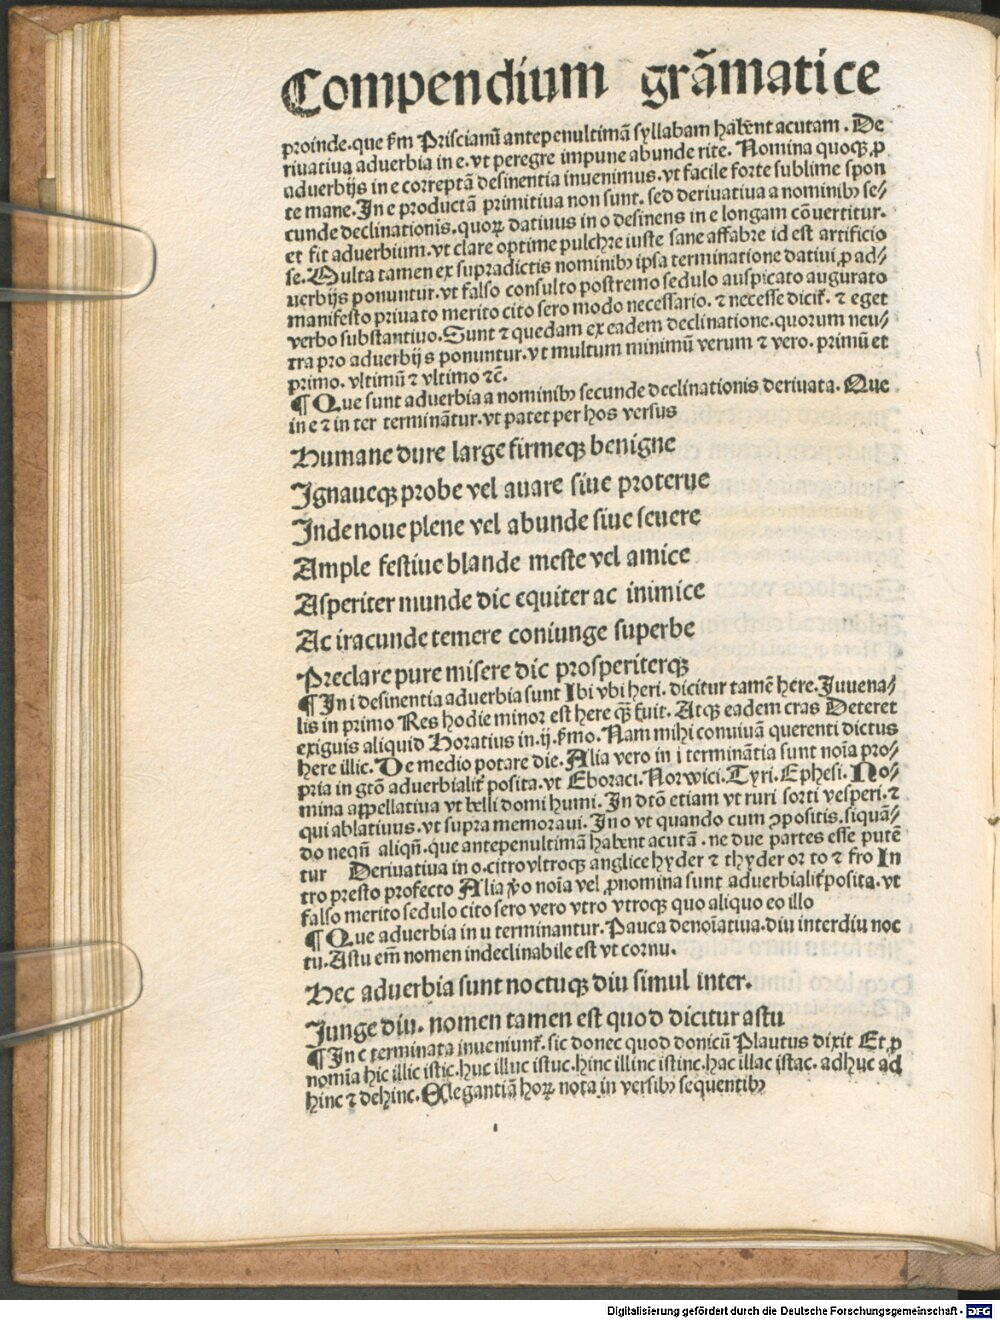 Compendium grãmatice
proinde.que ẜm Priscianũ antepenultimã syllabam habẽnt acutam. De
riuatiua aduerbia in e.vt peregre impune abunde rite. Nomina quoqꝫ ꝓ
aduerbijs in e correptã desinentia inuenimus.vt facile forte sublime spon
te mane.In e productã primitiua non sunt. sed deriuatiua a nominibꝫ se/
cunde declinationis.quoꝝ datiuus in o desinens in e longam cõuertitur.
et fit aduerbium.vt clare optime pulchre iuste sane affabre id est artificio
se.Multa tamen ex supradictis nominibꝫ ipsa terminatione datiui ꝓ ad/
uerbijs ponuntur.vt falso consulto postremo sedulo auspicato augurato
manifesto priuato merito cito sero modo necessario. ⁊ necesse dicit᷑. ⁊ eget
verbo substantiuo.Sunt ⁊ quedam ex eadem declinatione.quorum neu/
tra pro aduerbijs ponuntur.vt multum minimũ verum ⁊ vero. primũ et
primo. vltimũ ⁊ vltimo ⁊c̃.
¶ Que sunt aduerbia a nominibꝫ secunde declinationis deriuata. Que
in e ⁊ in ter terminãtur.vt patet per hos versus
Humane dure large firmeqꝫ benigne
Ignaueqꝫ probe vel auare siue proterue
Inde noue plene vel abunde siue seuere
Ample festiue blande meste vel amice
Asperiter munde dic equiter ac inimice
Ac iracunde temere coniunge superbe
Preclare pure misere dic prosperiterqꝫ
¶ In i desinentia aduerbia sunt Ibi vbi heri. dicitur tamẽ here.Iuuena/
lis in primo Res hodie minor est here qꝫ̃ fuit. Atqꝫ eadem cras Deteret
exiguis aliquid Horatius in.ij.ẜmo. Nam mihi conuiuã querenti dictus
here illic. De medio potare die. Alia vero in i terminãtia sunt noĩa pro/
pria in gtõ aduerbialit᷑ posita.vt Eboraci.Norwici.Tyri.Ephesi. No/
mina appellatiua vt belli domi humi. In dtõ etiam vt ruri sorti vesperi.⁊
qui ablatiuus.vt supra memoraui. In o vt quando cum ꝯpositis.siquã/
do neqñ aliqñ.que antepenultimã habent acutã . ne due partes esse putẽ
tur Deriuatiua in o.citro vltroqꝫ anglice hyder ⁊ thyder or to ⁊ fro In
tro presto profecto Alia ṽo noĩa vel ꝓnomina sunt aduerbialit᷑ posita.vt
falso merito sedulo cito sero vero vtro vtroqꝫ quo aliquo eo illo
¶ Que aduerbia in u terminantur.Pauca denoĩatiua.diu interdiu noc
tu.Astu em̃ nomen indeclinabile est vt cornu.
Hec aduerbia sunt noctuqꝫ diu simul inter.
Iunge diu. nomen tamen est quod dicitur astu
¶ In c terminata inueniunt᷑. sic donec quod donicũ Plautus dixit Et ꝓ
nomĩa hic illic istic.huc illuc istuc.hinc illinc istinc.hac illac istac. adhuc ad
hinc ⁊ dehinc.Elegantiã hoꝝ nota in versibꝫ sequentibꝫ
Digitalisierung gefördert durch die Deutsche Forschungsgemeinschaft - DFG